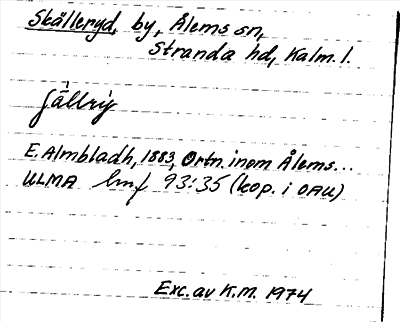 Skälleryd, by, Ålems sn,
Stranda hd, Kalm. l.
E. Almbladh, 1883, Ortn. inom Ålems...
ULMA hmf 93:35 (kop. i OAU)
Exc. av K.M. 1974